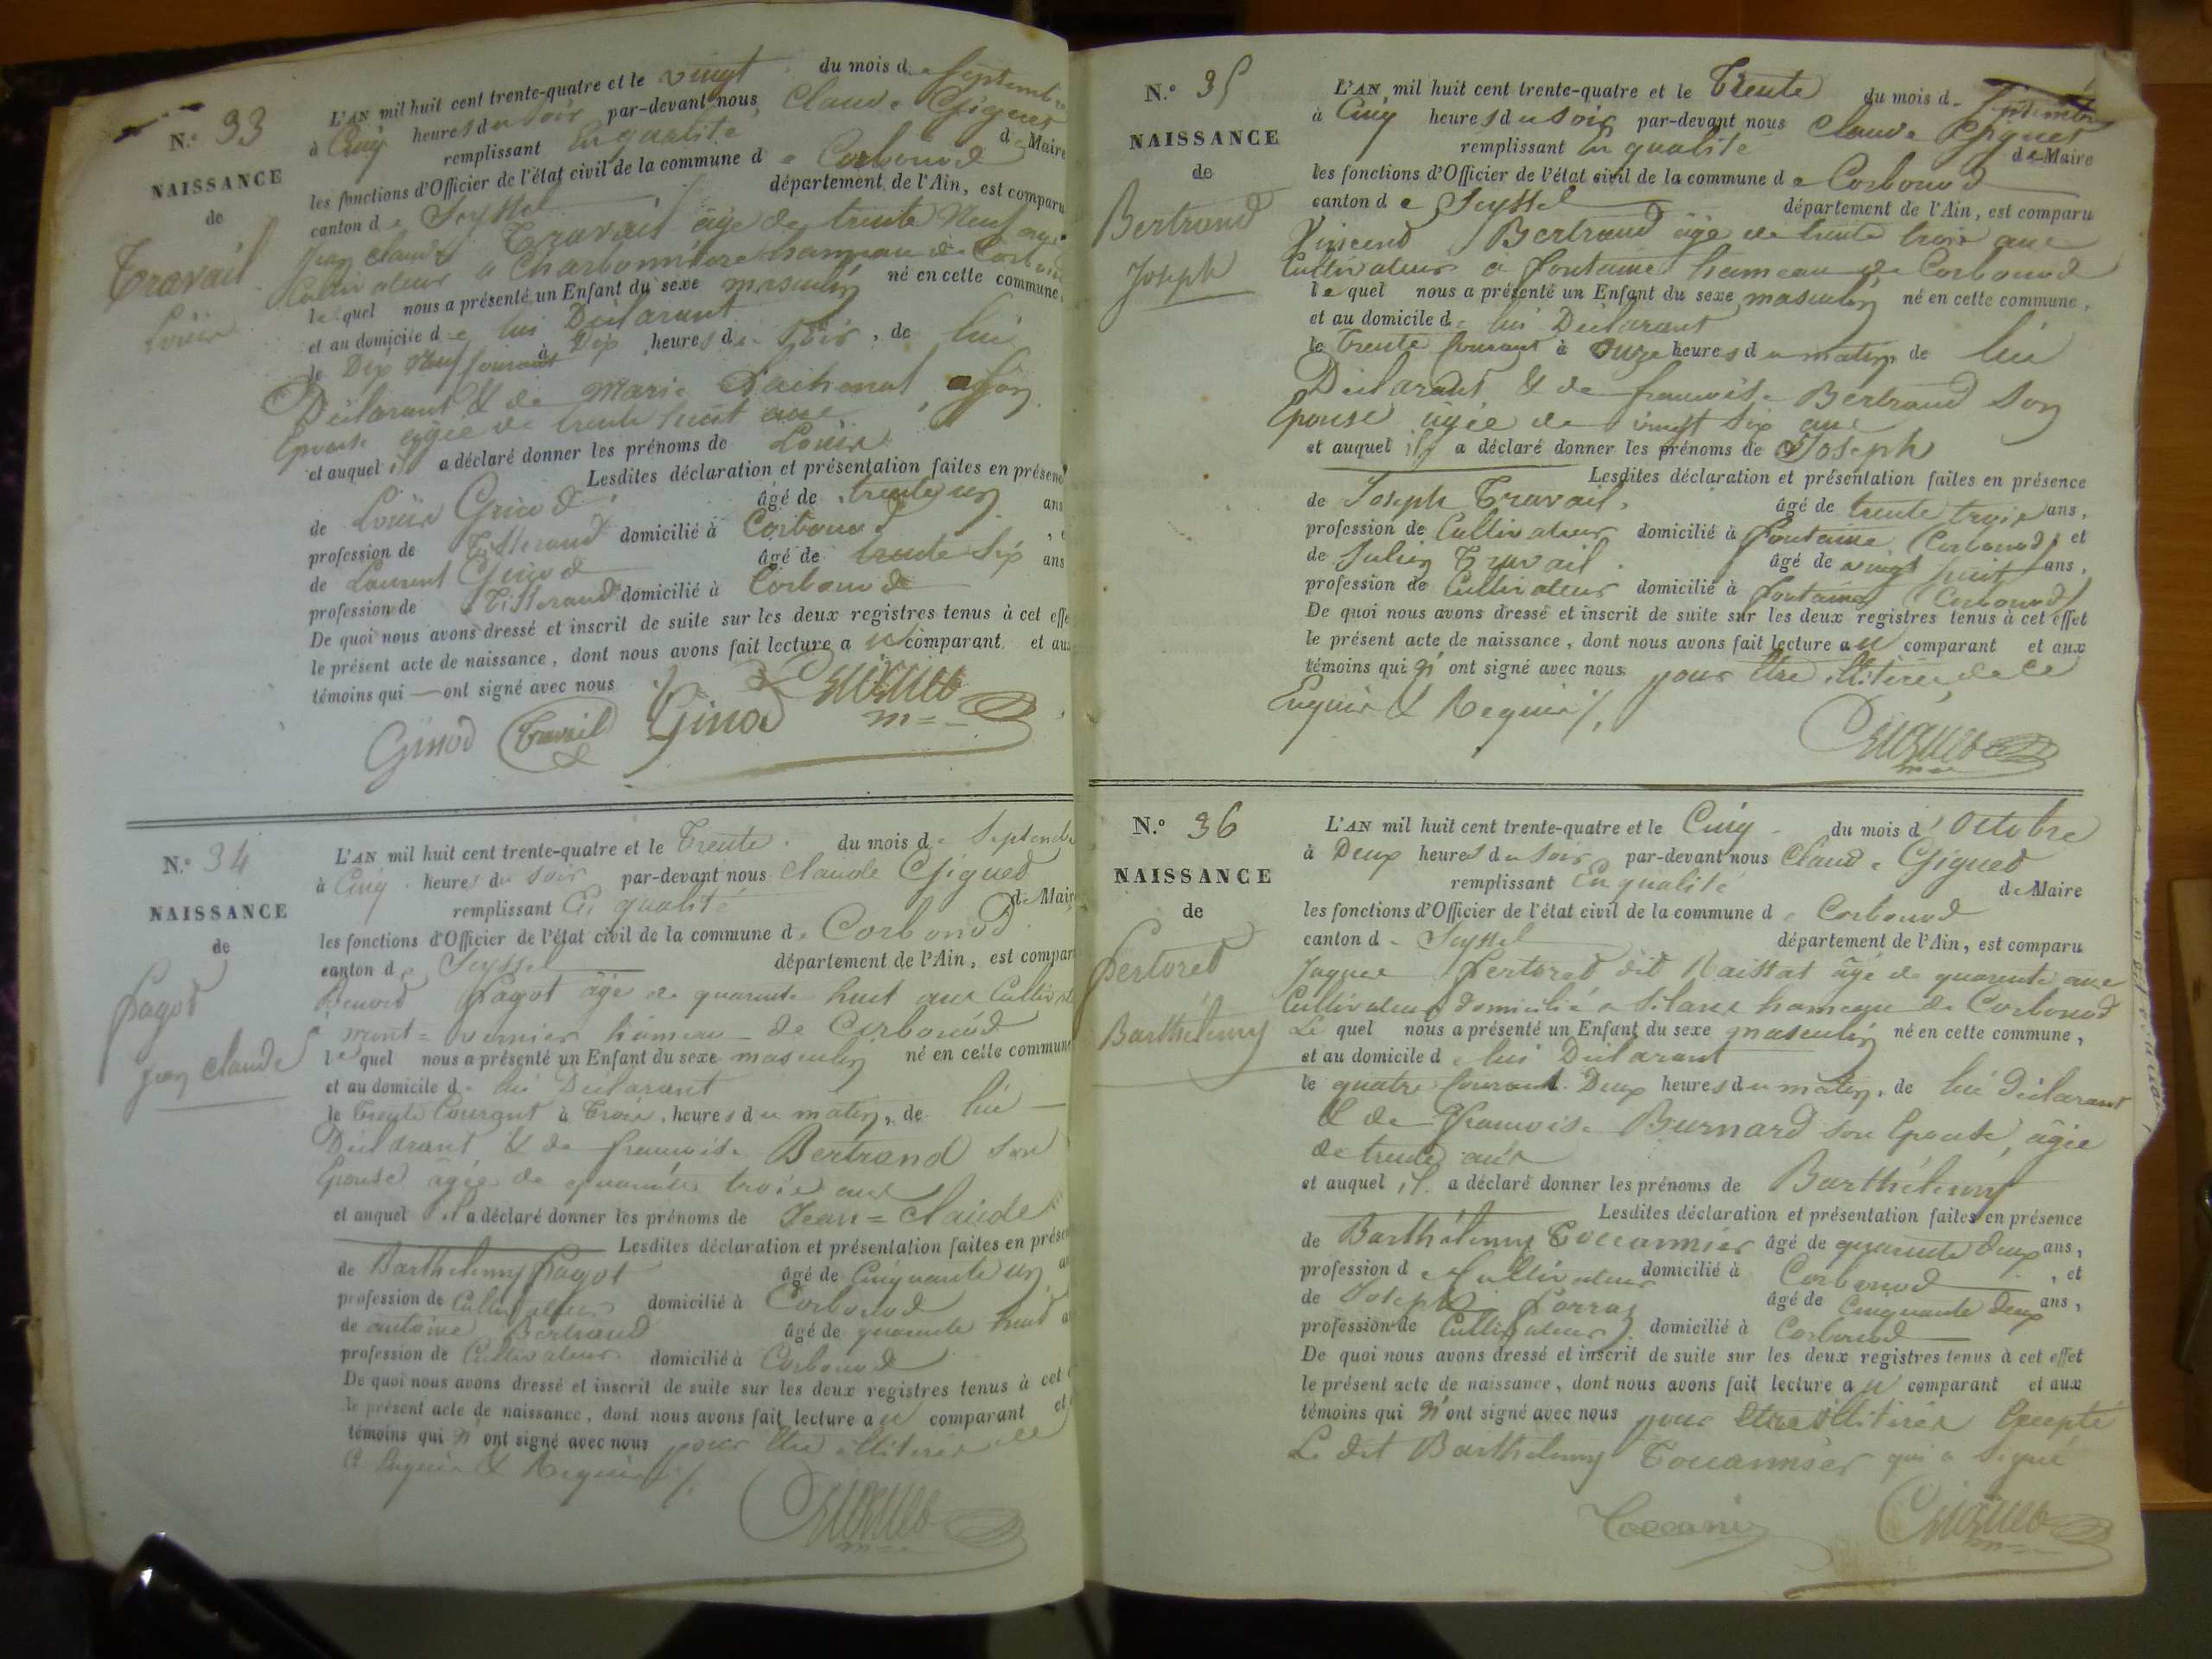 N.° 33
NAISSANCE
de
Travail
Louis
L'AN mil huit cent trente-quatre et le vingt du mois de Septembre
à Cinq heures du soir par-devant nous Claude Gignet
remplissant En qualité de Maire
les fonctions d'Officier de l'état civil de la commune de Corbonod
canton de Seyssel département de l'Ain, est comparu
Jean Claude Travail âgé de trente Neuf ans
Cultivateur a Charbonnière hameau de Corbonod
lequel nous a présenté un Enfant du sexe masculin né en cette commune,
et au domicile de lui Déclarant
le Dix Neuf Courant à Dix heures du Soir, de lui
Déclarant & de Marie son
Epouse agée de trente huit ans
et auquel il a déclaré donner les prénoms de Louis
Lesdites déclaration et présentation faites en présence
de Louis Ginod âgé de trente un ans
profession de Tisserand domicilié à Corbonod, e
de Laurent Ginod âgé de trente Six ans
profession de Tisserand domicilié à Corbonod
De quoi nous avons dressé et inscrit de suite sur les deux registres tenus à cet effe
le présent acte de naissance, dont nous avons fait lecture au comparant et aux
témoins qui — ont signé avec nous
Ginod Travail Ginod Gignet
m
N.° 34
NAISSANCE
de
Pagot
Jean Claude
L'AN mil huit cent trente-quatre et le Trente du mois de Septembre
à Cinq heures du soir par-devant nous Claude Gignet
remplissant En qualité de Maire
les fonctions d'Officier de l'état civil de la commune de Corbonod
canton de Seyssel département de l'Ain, est compar
Pagot âgé de quarante huit ans Cultiv
mont = vernier hameau de Corbonod
lequel nous a présenté un Enfant du sexe masculin né en cette commune
et au domicile de lui Déclarant
le Trente Courant à Trois heures du matin, de lui
Déclarant & de françoise Bertrand son
Epouse agée de quarante trois ans
et auquel il a déclaré donner les prénoms de Jean = Claude
Lesdites déclaration et présentation faites en prése
de Barthelemy Pagot âgé de Cinquante un
profession de Cultivateur domicilié à Corbonod
de antoine Bertrand âgé de quarante huit
profession de Cultivateur domicilié à Corbonod
De quoi nous avons dressé et inscrit de suite sur les deux registres tenus à cet
le présent acte de naissance, dont nous avons fait lecture au comparant et
témoins qui n' ont signé avec nous pour être illitirés de
ce Enquis & Requis /.
Gignet
m
N.° 35
NAISSANCE
de
Bertrand
Joseph
L'AN mil huit cent trente-quatre et le Trente du mois de Septembre
à Cinq heures du soir par-devant nous Claude Gignet
remplissant En qualité de Maire
les fonctions d'Officier de l'état civil de la commune de Corbonod
canton de Seyssel département de l'Ain, est comparu
Vinscend Bertrand âgé de trente trois ans
Cultivateur a fontaine hameau de Corbonod
lequel nous a présenté un Enfant du sexe masculin né en cette commune,
et au domicile de lui Déclarant
le trente Courant à Onze heures du matin de lui
Déclarant & de françoise Bertrand Son
Epouse agée de vingt Six ans
et auquel il a déclaré donner les prénoms de Joseph
Lesdites déclaration et présentation faites en présence
de Joseph Travail, âgé de trente trois ans,
profession de Cultivateur domicilié à fontaine (Corbonod), et
de Julien Travail âgé de vingt huit ans,
profession de Cultivateur domicilié à fontaine (Corbonod)
De quoi nous avons dressé et inscrit de suite sur les deux registres tenus à cet effet
le présent acte de naissance, dont nous avons fait lecture au comparant et aux
témoins qui n' ont signé avec nous pour être illitirés de ce
Enquis & Requis /.
Gignet
m
N.° 36
NAISSANCE
de
Pertoret
Barthélemy
L'AN mil huit cent trente-quatre et le Cinq du mois d'Octobre
à Deux heures du soir par-devant nous Claude Gignet
remplissant En qualité de Maire
les fonctions d'Officier de l'état civil de la commune de Corbonod
canton de Seyssel département de l'Ain, est comparu
Jaques Pertoret dit Naissat âgé de quarante ans
Cultivateur domicilié a Silans hameau de Corbonod
Le quel nous a présenté un Enfant du sexe masculin né en cette commune,
et au domicile de lui Déclarant
le quatre Courant Deux heures du matin, de lui Déclarant
& de françoise Burnard son Epouse, agée
de trente ans
et auquel il a déclaré donner les prénoms de Barthélemy
Lesdites déclaration et présentation faites en présence
de Barthélemy Toccanier âgé de quarante deux ans,
profession de Cultivateur domicilié à Corbonod, et
de Joseph âgé de Cinquante deux ans,
profession de Cultivateur domicilié à Corbonod
De quoi nous avons dressé et inscrit de suite sur les deux registres tenus à cet effet
le présent acte de naissance, dont nous avons fait lecture au comparant et aux
témoins qui n' ont signé avec nous pour être illitirés Excepté
Le dit Barthelemy Toccanier qui a Signé
Toccanier Gignet